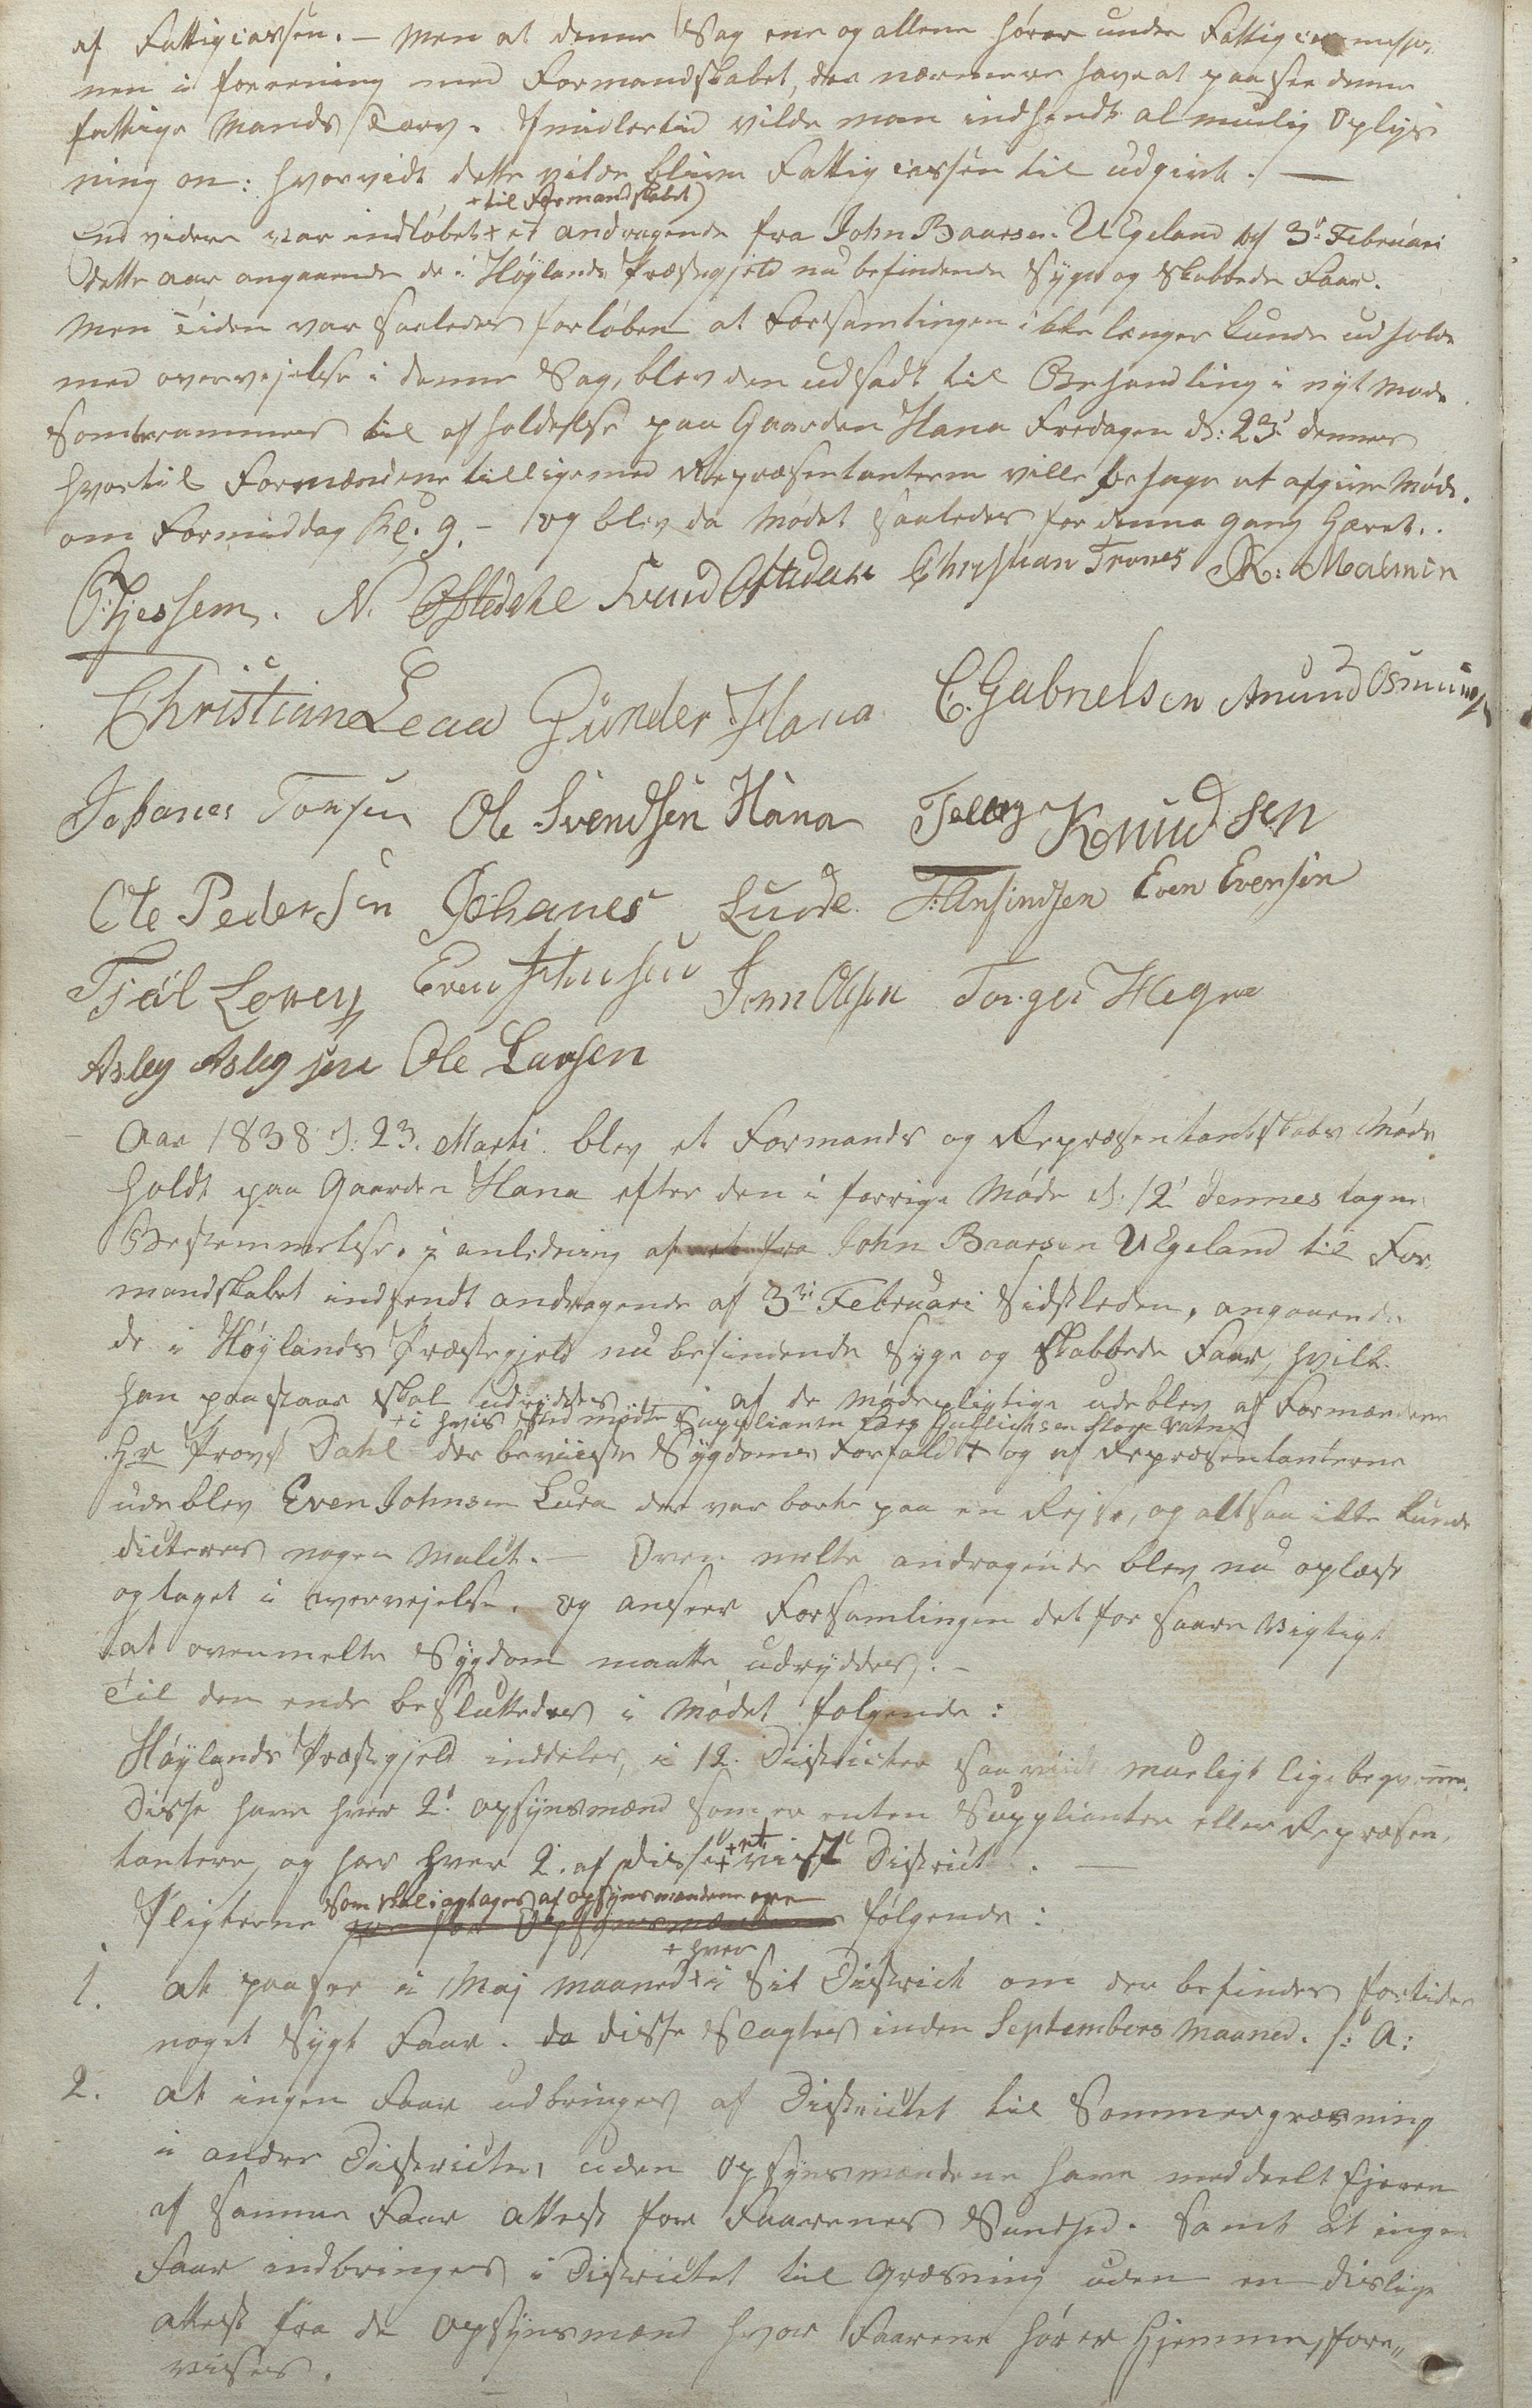 af Fattigcassen. — Men at denne Sag ene og allene hører under Fattigcommissio-
nen i forening med Formandskabet, der nærmere have at paasee denne
fattige Mands Tarv. Imidlertid vilde man indhendt al muelig Oplys
ning om: hvorvidt dette vilde blive Fattigcassen til udgivt. —
+ til Formandskabet)
End videre var indløbet + et andragende fra John Baarsen U Egeland af 3die Februari
dette aar angaaende de i Høylands Præstegjeld nu befindende Syge og Skabbede Faar.
Men Tiden var saaledes forløben at Forsamlingen ikke længer kunde udholde
med overvejelse i denne Sag, blev den udsadt til Behandling i nyt Møde
som berammes til afholdelse paa Gaarden Hana Fredagen d: 23de dennes
hvortil Formændene tilligemed Repræsentanterne ville behage at afgive Møde.
om Formiddag Kl. 9. — og blev da Mødet saaledes for denne gang hævet.
O Tjessem. N. Oftedahl Svend Oftedahl Christian Trones K: Malmin
Christian Leaa Gunder Hana C. Gabrielsen Amund Osmundsen
Johanes Tonsen Ole Svendsen Hana Tellef Knudsen
Ole Pedersen Johanes Lunde. Even Evensen
Even Johnsen John Olsen Torger Hegre
Asleg Aslegsen Ole Larsen
Aar 1838 d: 23. Marti blev et Formands og Repræsentantskabs Møde
holdt paa Gaarden Hana efter den i forrige Møde d. 12te dennes tagne
Bestemmelse. i anledning af John Baarsen U Egeland til For
mandskabet indsendt andragende af 3die Februari Sidstleden, angaaende
de i Høylands Præstegjeld nu befindende Syge og Skabbede Faar, hvilke
han paastaar skal udryddes. — af de Mødepligtige udeblev af Formændene
+ i hvis sted mødte Supplianten Gullichsen Vatne
Hr Provst Dahl der beviiste Sygdoms Forfald + og af Repræsentanterne
udeblev Even Johnsen Lura der var borte paa en Rejse, og altsaa ikke kunde
dicteres nogen Mulct. — Oven melte andragende blev nu oplæst
og taget i overvejelse. og anseer Forsamlingen det for saare vigtigt
at ovenmelte Sygdom maatte udryddes. —
Til den ende besluttedes i Mødet følgende:
Høylands Præstegjeld inddeles, i 12. Districter saa vidt mueligt lige beqvemme.
Disse have hver 2de opsynsmænd som er enten Supplianter eller Repræsen,
tantere, og har hver 2. af disse + et vist District. —
som skal iagtages af opsynsmændene ere
Pligterne følgende:
+ hver
1. at paasee i Maj maaned + i Sit District om der befindes for tiden
noget Sygt Faar. da disse Slagtes inden Septembers Maaned. /: A:
2. at ingen Faar udbringes af Districtet til Sommergræsning
i andre Districter, uden Opsynsmændene have meddeelt Ejeren
af samme Faar attest for Faarenes Sundhed. samt at ingen
Faar indbringes i Districtet til Græsning uden en dislige
attest fra de Opsynsmænd hvor Faarene hører hjemme, fore„
vises.